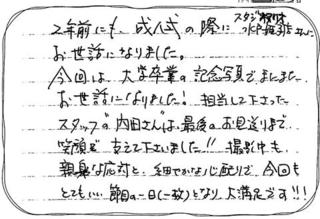 2年前にも、成人式の際に スタジオ
お世話になりました。
今回は、大学卒業の記念写真でまたまた
お世話になりました！担当して下さった
スタッフの内田さんは、最後のお見送りまで
笑顔で 支えて下さいました!! 撮影中も
親身な応対と、細やかな心配りで、今回も
とてもいい節目の一日(一枚)となり、大満足です!!!